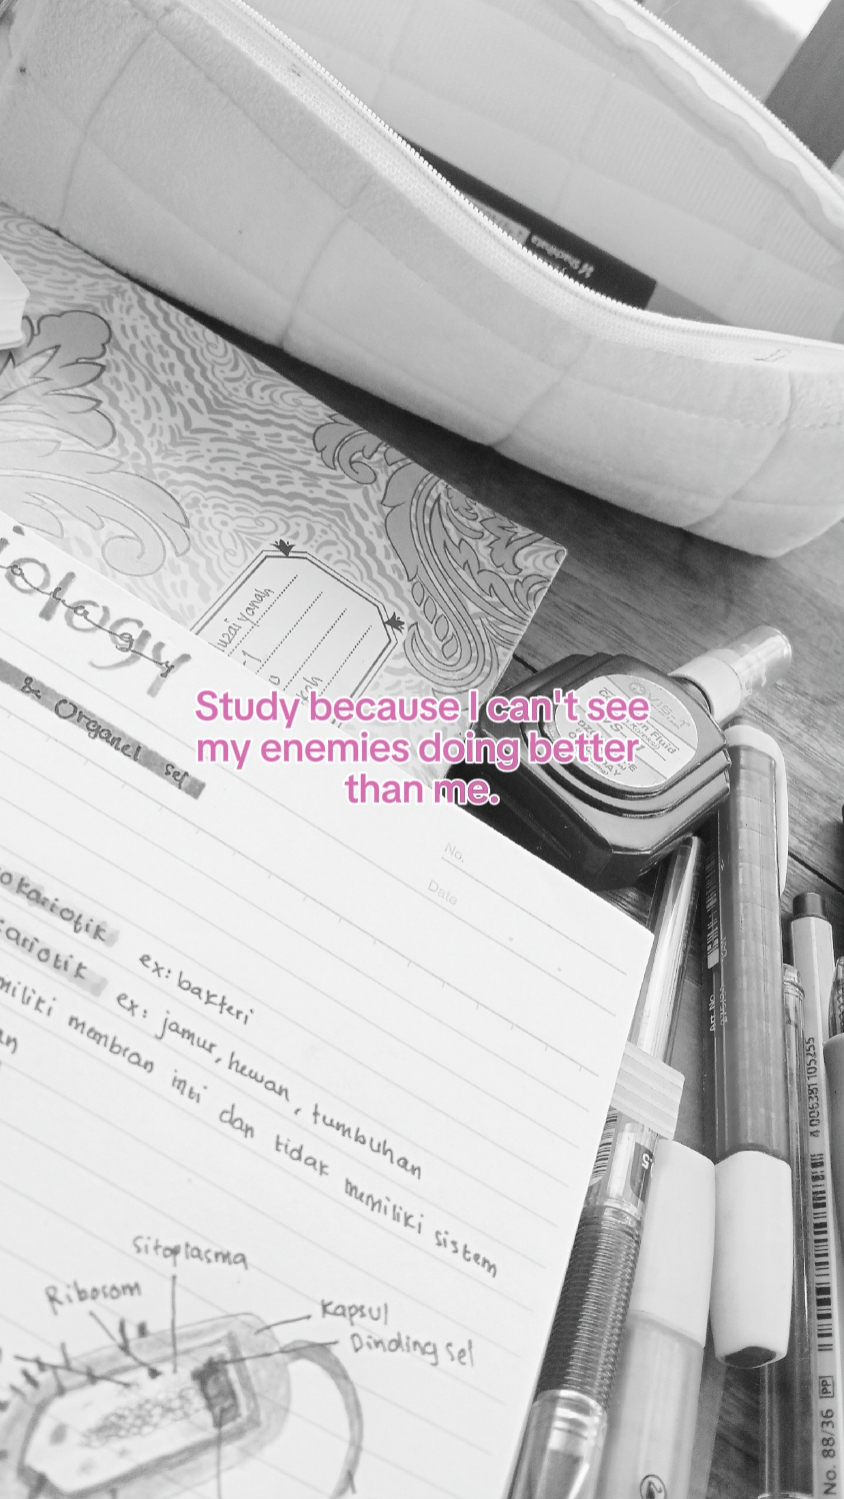 iology
& Organel sel
Study because I can't see
my enemies doing better
than me.
No.
Date
okariotik ex: bakteri
kariotik ex: jamur, hewan, tumbuhan
miliki membran inti dan tidak memiliki sistem
an
Sitoplasma
Ribosom
Kapsul
Dinding sel
uzai yanah
1
n Fluid
4 006381 105255
No. 88/36 PP